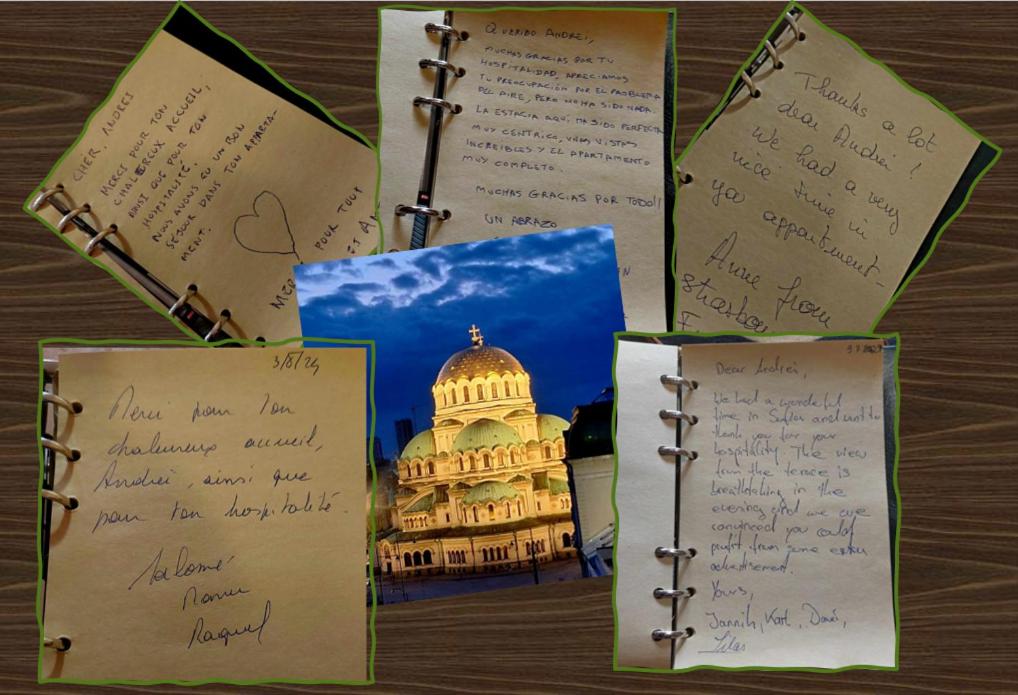 CHER. ANDREI
MERCI POUR TON
CHALEUREUX ACCUEIL,
AINSI QUE POUR TON
HOSPITALITÉ.
NOUS AVONS EU UN BON
SÉJOUR DANS TON APPARTA-
MENT.
POUR TOUT
QUERIDO ANDREI,
MUCHAS GRACIAS POR TU
HOSPITALIDAD, APRECIAMOS
TU PREOCUPACIÓN POR EL PROBLEMA
DEL AIRE, PERO NO HA SIDO NADA.
LA ESTACIA AQUÍ HA SIDO PERFECTA
MUY CENTRICO, UNAS VISTAS
INCREIBLES Y EL APARTAMENTO
MUY COMPLETO.
MUCHAS GRACIAS POR TODO!!
UN ABRAZO
Thanks a lot
dear Andrei !
We had a very
nice time in
you appartment
Anne from
3/8/24
Merci pour ton
chaleureux accueil,
Andréi, ainsi que
pour ton hospitalité.
Salomé
Raquel
Dear Andrei,
We had a wonderful
time in Sofia and want to
thank you for your
hospitality. The view
from the terace is
breathtaking in the
evening and we are
convinced you could
profit from some extra
advertisement.
Yours,
Jannik, Karl, David,